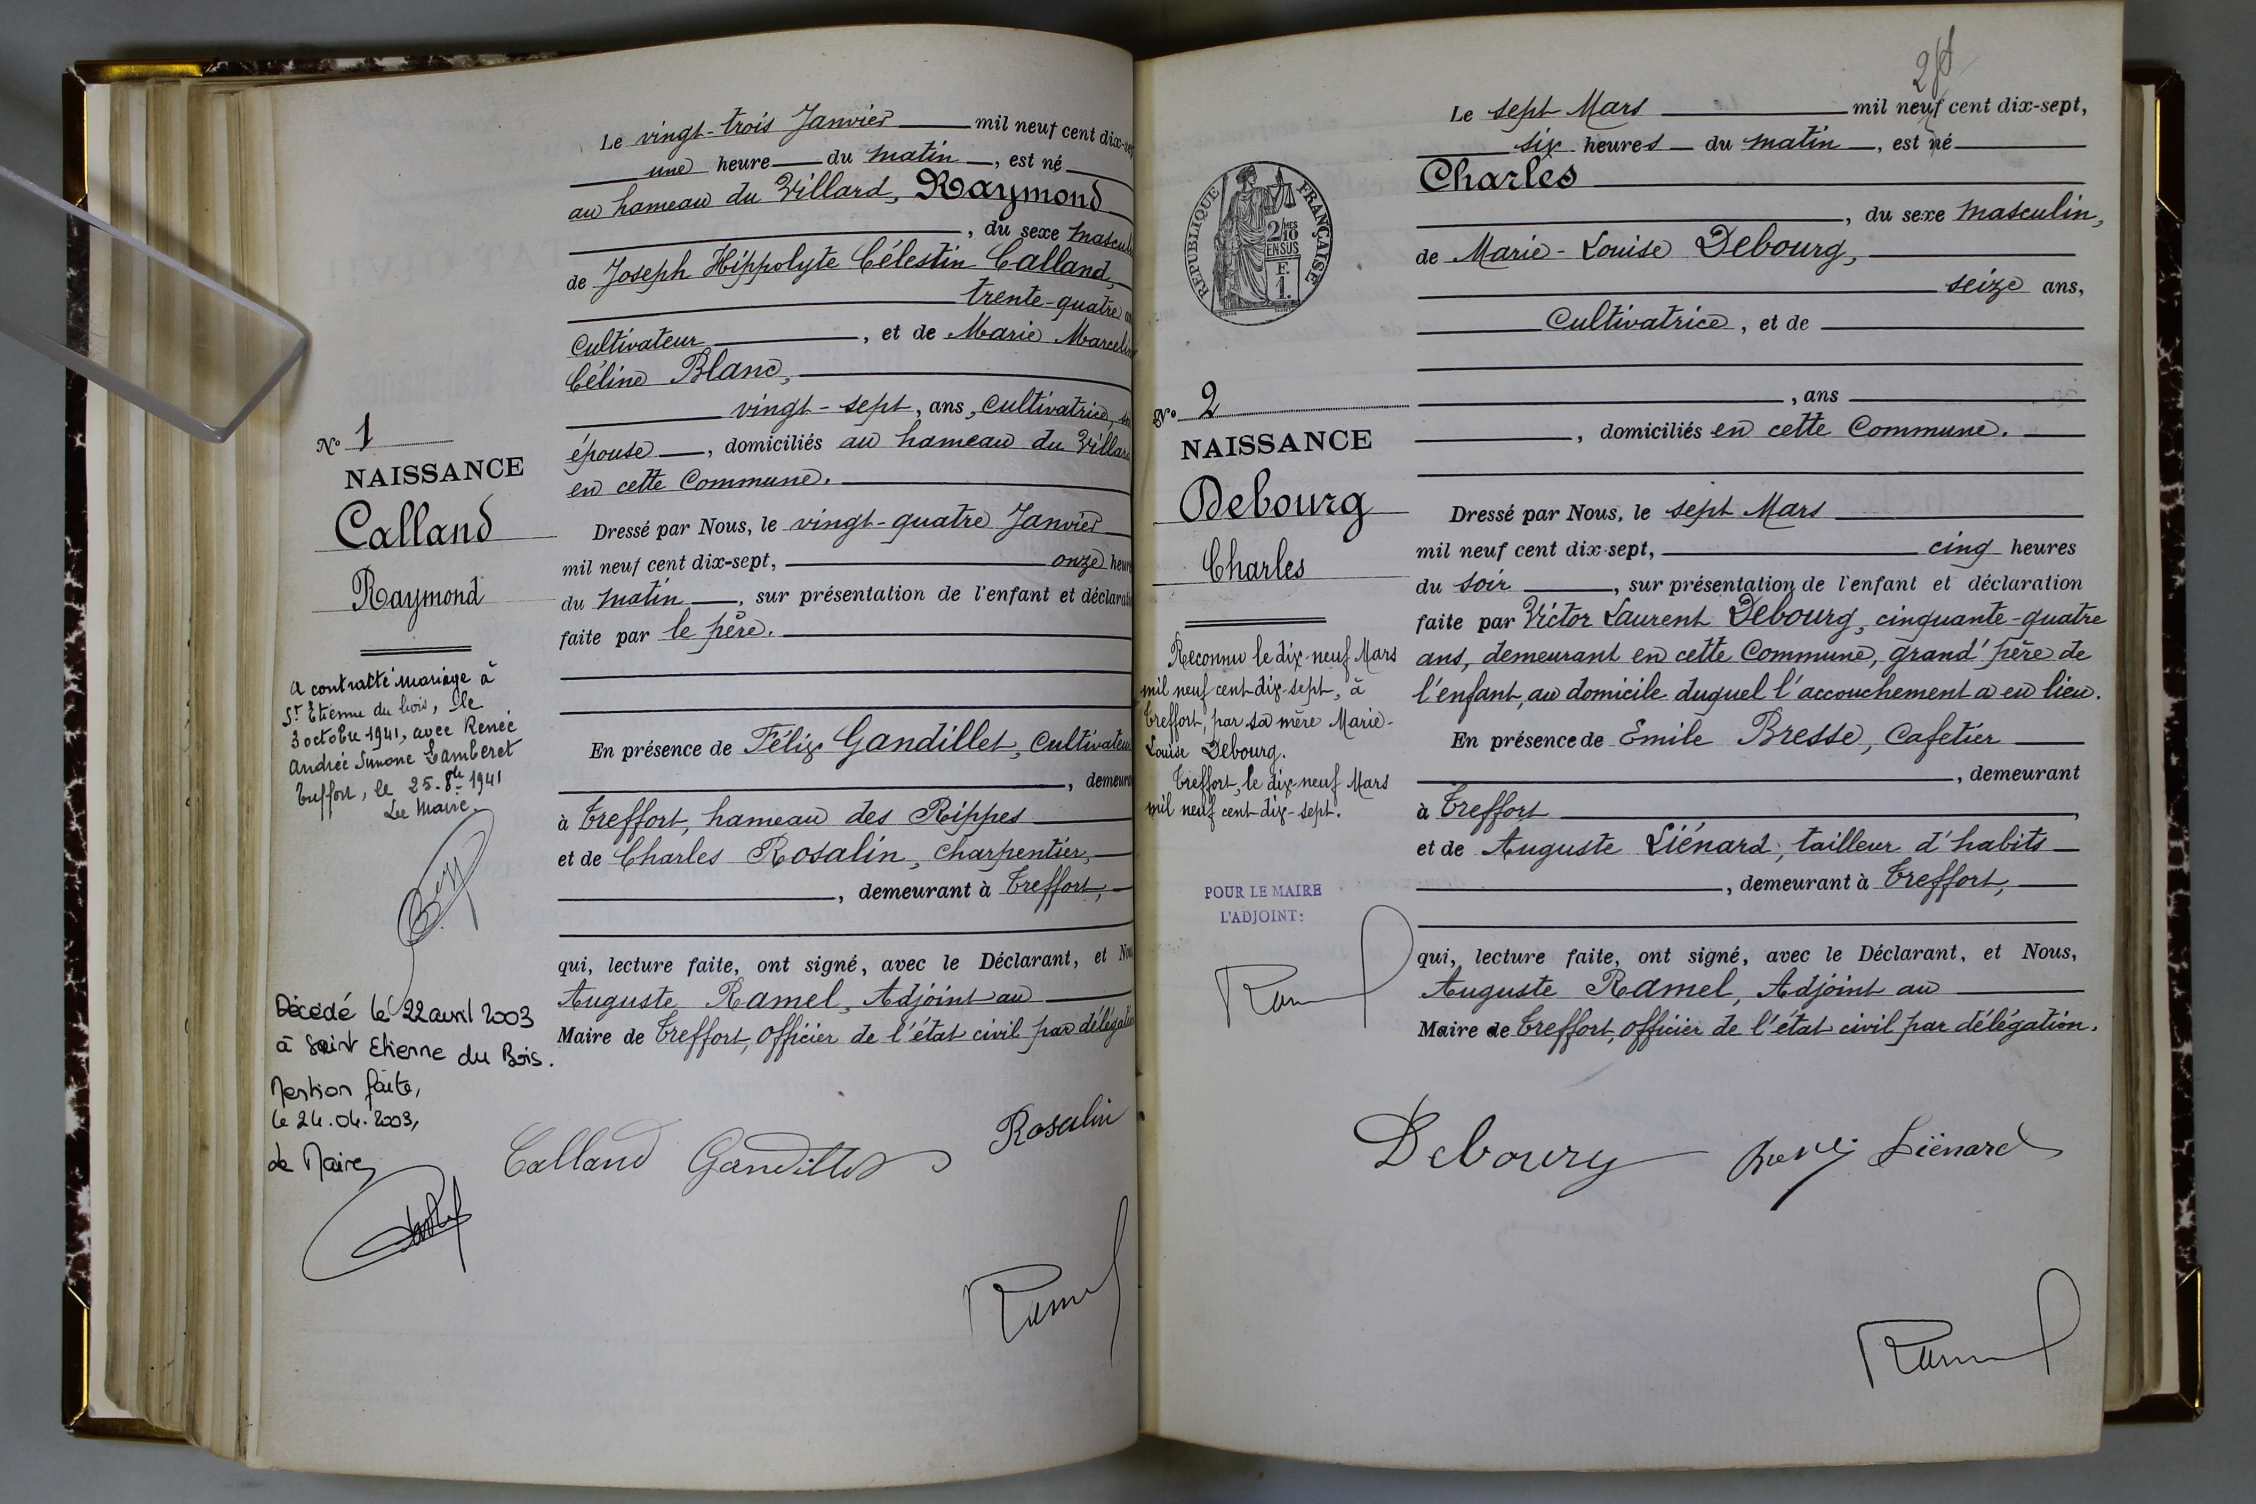 Le vingt-trois Janvier mil neuf cent dix-sept
une heure du matin, est né
au hameau du Villard, Raymond
, du sexe masculin
de Joseph Hippolyte Célestin Calland,
trente-quatre
Cultivateur, et de Marie Marceline
Céline Blanc,
vingt-sept, ans, Cultivatrice,
épouse, domiciliés au hameau du Villard
en cette Commune.
Dressé par Nous, le vingt-quatre Janvier
mil neuf cent dix-sept, onze heures
du matin, sur présentation de l'enfant et déclaration
faite par le père.
En présence de Félix Gandillet, Cultivateur
, demeurant
à Treffort, hameau des Rippes
et de Charles Rosalin, charpentier,
, demeurant à Treffort,
qui, lecture faite, ont signé, avec le Déclarant, et Nous
Auguste Ramel, Adjoint au
Maire de Treffort, Officier de l'état civil par délégation
Calland Gandillet Rosalin
Ramel
No 1
NAISSANCE
Calland
Raymond
A contracté mariage à
St Etienne du bois, le
3 octobre 1941, avec Renée
Andrée Simone Lamberet
Treffort, le 25-8bre 1941
Le Maire.
Décédé le 22 avril 2003
à Saint Etienne du Bois.
Mention faite,
le 24.04.2003,
Le Maire,
2
Le sept Mars mil neuf cent dix-sept,
six heures du matin, est né
Charles
, du sexe masculin,
de Marie-Louise Debourg,
seize ans,
Cultivatrice, et de
, ans
, domiciliés en cette Commune.
Dressé par Nous, le sept Mars
mil neuf cent dix-sept, cinq heures
du soir, sur présentation de l'enfant et déclaration
faite par Victor Laurent Debourg, cinquante-quatre
ans, demeurant en cette Commune, grand'père de
l'enfant, au domicile duquel l'accouchement a eu lieu.
En présence de Emile Bresse, Cafetier
, demeurant
à Treffort,
et de Auguste Liénard, tailleur d'habits
, demeurant à Treffort,
qui, lecture faite, ont signé, avec le Déclarant, et Nous,
Auguste Ramel, Adjoint au
Maire de Treffort, Officier de l'état civil par délégation.
Debourg Liénard
Ramel
RÉPUBLIQUE FRANÇAISE
2/10MES
EN SUS
F.
1.
No 2
NAISSANCE
Debourg
Charles
Reconnu le dix-neuf Mars
mil neuf cent-dix-sept, à
Treffort, par sa mère Marie-
Louise Debourg.
Treffort, le dix-neuf Mars
mil neuf cent-dix-sept.
POUR LE MAIRE
L'ADJOINT:
Ramel